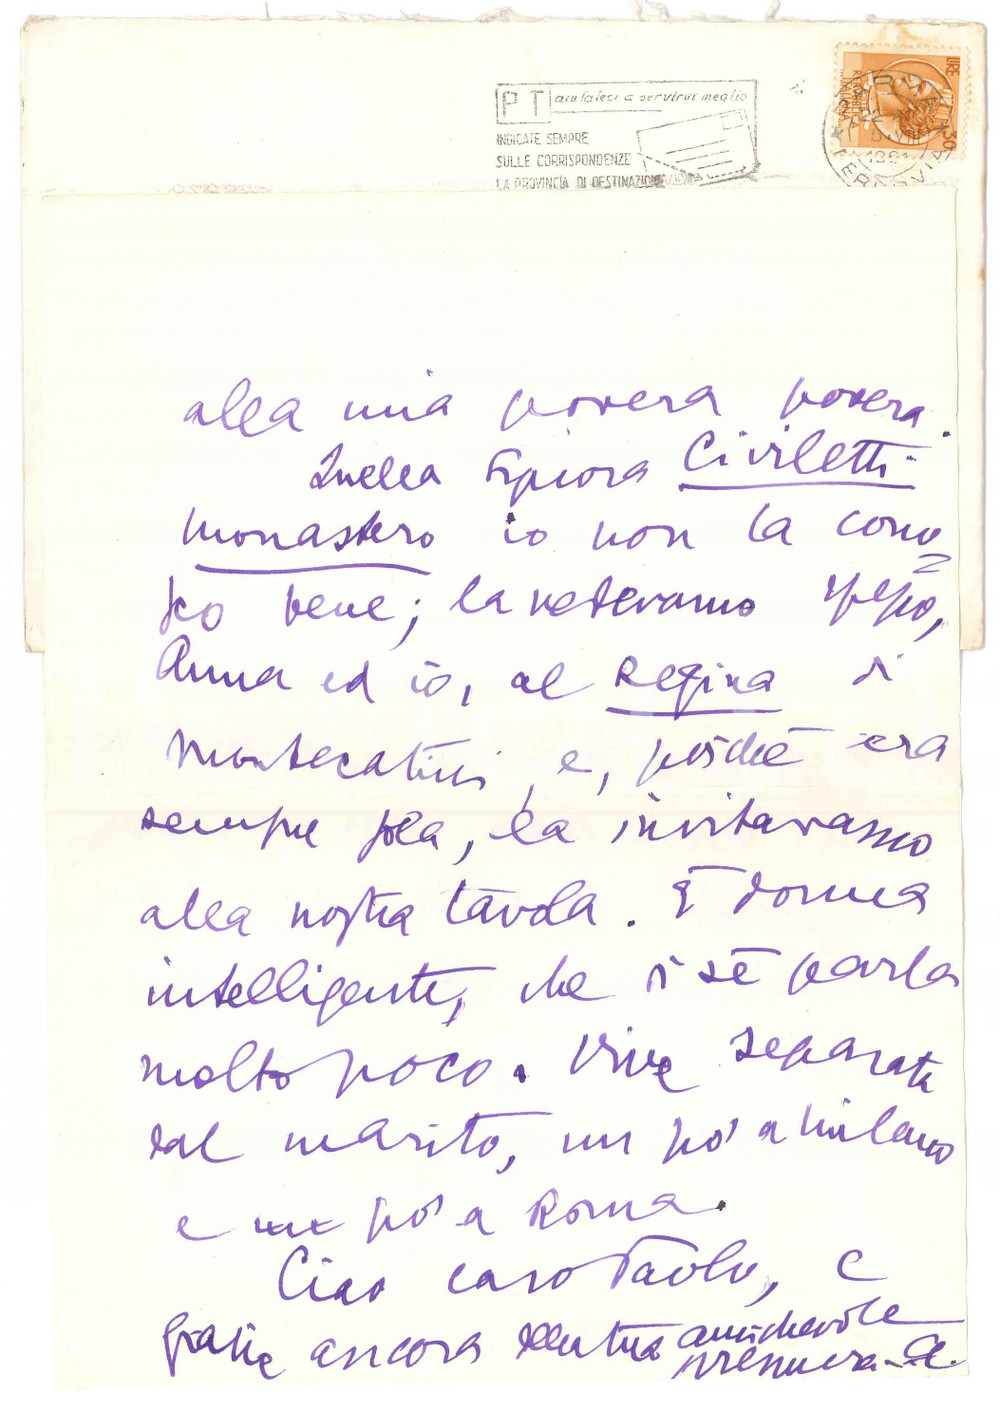 PT aiutateci a servirvi meglio
INDICATE SEMPRE
SULLE CORRISPONDENZE
LA PROVINCIA DI DESTINAZIONE
LIRE
alla mia povera povera.
Quella Signora Civiletti
Monastero io non la cono=
sco bene; la vedevamo spesso,
Anna ed io, al Regina di
Montecatini e, poiché era
sempre sola, la invitavamo
alla nostra tavola. È donna
intelligente, che di sé parla
molto poco. Vive separata
dal marito, un po' a Milano
e un po' a Roma.
Ciao caro Paolo, e
grazie ancora della tua amichevole
premura. A.